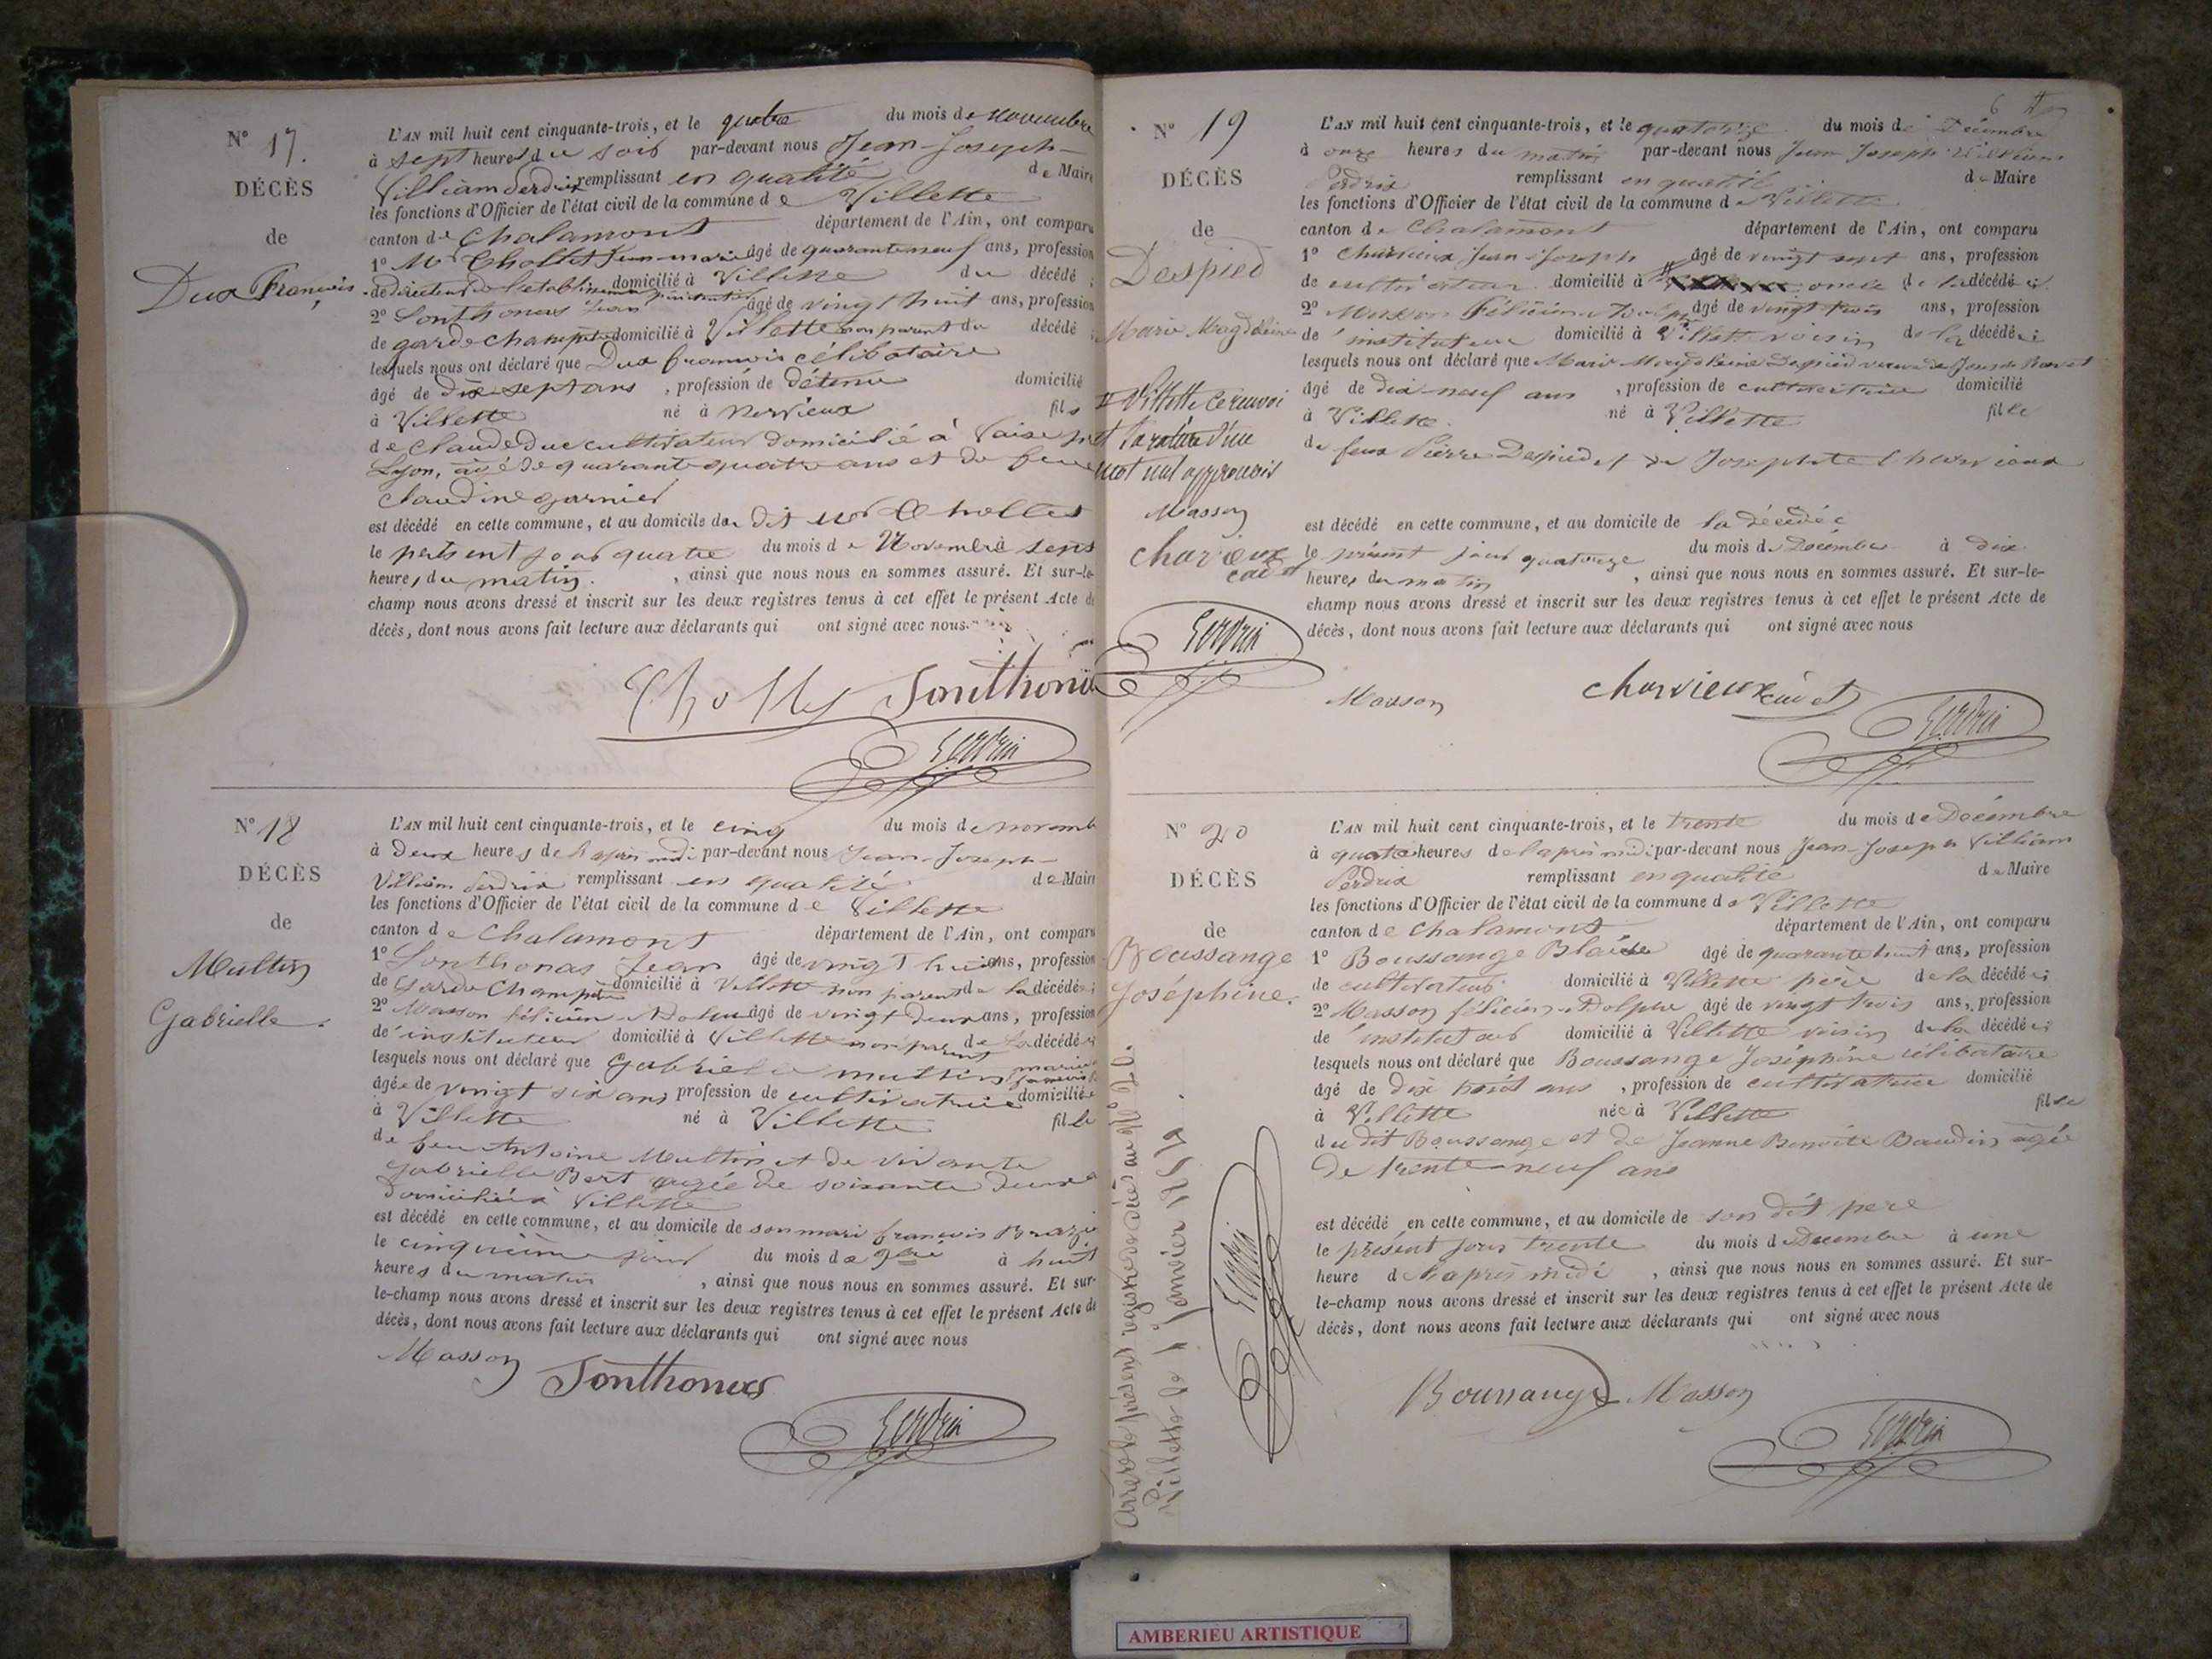 N° 17.
DÉCÈS
de
Duc François
L'AN mil huit cent cinquante-trois, et le quatre du mois de Novembre
à sept heures du soir par-devant nous Jean-Joseph-
Villiam Perdrix remplissant en qualité de Maire
les fonctions d'Officier de l'état civil de la commune de Villette
canton de Chalamont département de l'Ain, ont comparu
1° Mr Chollet Jean-marie âgé de quarante neuf ans, profession
de directeur de l'etablissement domicilié à Villette du décédé ;
2° Jean âgé de vingt huit ans, profession
de garde champêtre domicilié à Villette non parent du décédé ;
lesquels nous ont déclaré que Duc francois célibataire
âgé de dix-sept ans , profession de détenu domicilié
à Villette né à fils
de Claude Duc cultivateur domicilié à Vaise près
Lyon, âgé de quarante quatre ans et de feue
Claudine garnier
est décédé en cette commune, et au domicile du dit Mr Chollet
le présent jour quatre du mois de Novembre à sept
heures du matin. , ainsi que nous nous en sommes assuré. Et sur-le-
champ nous avons dressé et inscrit sur les deux registres tenus à cet effet le présent Acte de
décès, dont nous avons fait lecture aux déclarants qui ont signé avec nous
Chollet
Perdrix
N° 18
DÉCÈS
de
Multin
Gabrielle.
L'AN mil huit cent cinquante-trois, et le cinq du mois de novemb
à deux heures de l'après midi par-devant nous Jean-Joseph-
Villiam Perdrix remplissant en qualité de Maire
les fonctions d'Officier de l'état civil de la commune de Villette
canton de Chalamont département de l'Ain, ont comparu
1° Jean âgé de vingt huit ans, profession
de Garde Champêtre domicilié à Villette non parent de la décédée ;
2° Masson félicien Adolphe âgé de vingt deux ans, profession
de instituteur domicilié à Villette non parent de la décédée ;
lesquels nous ont déclaré que Gabrielle multin
âgée de vingt six ans profession de cultivatrice domiciliée
à Villette né à Villette fille
de feu Antoine Multin et de vivante
Gabrielle Bert agée de soixante deux
domiciliée à Villette
est décédé en cette commune, et au domicile de son mari francois
le cinquième jour du mois de 9bre à huit
heures du matin , ainsi que nous nous en sommes assuré. Et sur-
le-champ nous avons dressé et inscrit sur les deux registres tenus à cet effet le présent Acte de
décès, dont nous avons fait lecture aux déclarants qui ont signé avec nous
Masson
Perdrix
N° 19
DÉCÈS
de
Despied
Marie Magdeleine
Villette ce renvoi
et la rature d'un
mot nul approuvés
Masson
charvieux
cadet
Perdrix
L'AN mil huit cent cinquante-trois, et le quatorze du mois de Décembre
à onze heures du matin par-devant nous Jean Joseph Villiam
Perdrix remplissant en qualité de Maire
les fonctions d'Officier de l'état civil de la commune de Villette
canton de Chalamont département de l'Ain, ont comparu
1° Charvieux Jean Joseph âgé de vingt sept ans, profession
de cultivateur domicilié à oncle de la décédée ;
2° Masson Félicien Adolphe âgé de vingt trois ans, profession
de instituteur domicilié à Villette voisin de la décédée ;
lesquels nous ont déclaré que Marie Magdeleine Despied veuve de
âgé de dix-neuf ans , profession de cultivatrice domicilié
à Villette né à Villette fille
de feux Pierre Despied et de Josephte Charvieux
est décédé en cette commune, et au domicile de la décédée
le présent jour quatorze du mois de Décembre à dix
heures du matin , ainsi que nous nous en sommes assuré. Et sur-le-
champ nous avons dressé et inscrit sur les deux registres tenus à cet effet le présent Acte de
décès, dont nous avons fait lecture aux déclarants qui ont signé avec nous
Masson charvieux cadet
Perdrix
N° 20
DÉCÈS
de
Boussange
Joséphine.
L'AN mil huit cent cinquante-trois, et le trente du mois de Décembre
à quatre heures de l'après midi par-devant nous Jean-Joseph Villiam
Perdrix remplissant en qualité de Maire
les fonctions d'Officier de l'état civil de la commune de Villette
canton de Chalamont département de l'Ain, ont comparu
1° Boussange Blaise âgé de quarante huit ans, profession
de cultivateur domicilié à Villette père de la décédée ;
2° Masson félicien Adolphe âgé de vingt trois ans, profession
de instituteur domicilié à Villette voisin de la décédée ;
lesquels nous ont déclaré que Boussange Joséphine célibataire
âgé de dix ans , profession de cultivatrice domicilié
à Villette née à Villette fille
du dit Boussange et de Jeanne Benoîte Baudin agée
de trente-neuf ans
est décédé en cette commune, et au domicile de son dit père
le présent jour trente du mois de Décembre à une
heure de l'après midi , ainsi que nous nous en sommes assuré. Et sur-
le-champ nous avons dressé et inscrit sur les deux registres tenus à cet effet le présent Acte de
décès, dont nous avons fait lecture aux déclarants qui ont signé avec nous
Boussange Masson
Perdrix
Arrêté le présent registre de décès au N° 20.
Villette le 1 Janvier
Perdrix
AMBERIEU ARTISTIQUE